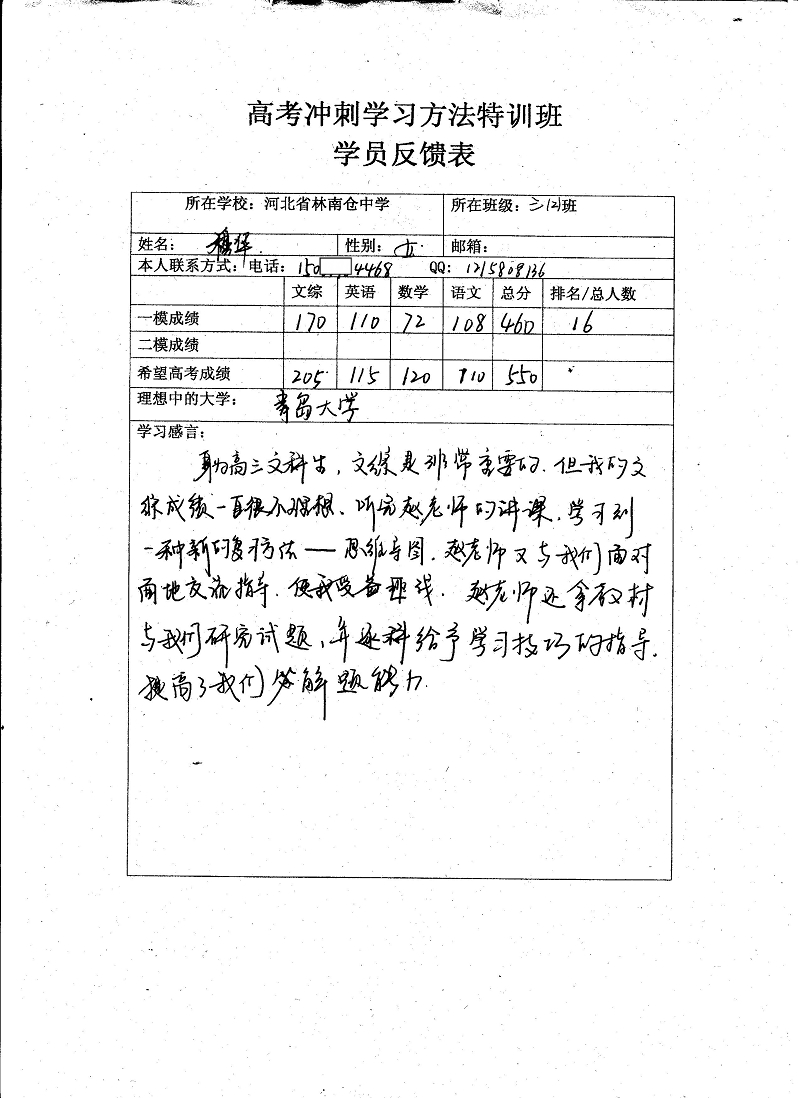 高考冲刺学习方法特训班
学员反馈表
所在学校：河北省林南仓中学 所在班级：三12班
姓名： 华 性别：女 邮箱：
本人联系方式：电话：150 4468 QQ：1215808136
文综 英语 数学 语文 总分 排名/总人数
一模成绩 170 110 72 108 460 16
二模成绩
希望高考成绩 205 115 120 110 550
理想中的大学： 青岛大学
学习感言：
身为高三文科生，文综是非常重要的．但我的文
综成绩一直很不理想、听完赵老师的讲课．学习到
一种新的复习方法——思维导图．赵老师又与我们面对
面地交流指导．使我受益 ．赵老师还拿教材
与我们研究试题，并逐科给予学习技巧的指导．
提高了我们 解题能力．